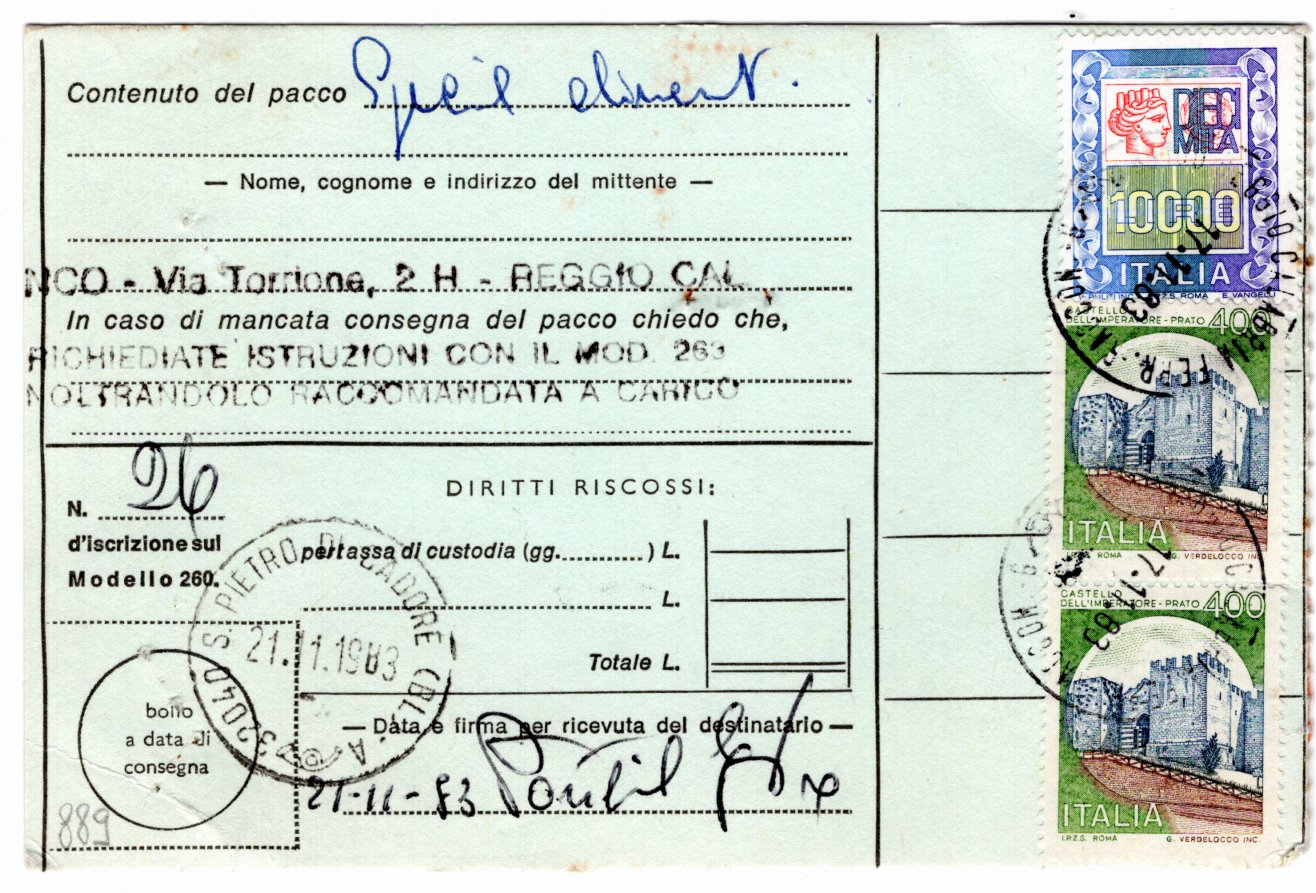 Contenuto del pacco
— Nome, cognome e indirizzo del mittente —
NCO - Via Torrione, 2 H - REGGIO CAL.
In caso di mancata consegna del pacco chiedo che,
RICHIEDIATE ISTRUZIONI CON IL MOD. 263
NOLTRANDOLO RACCOMANDATA A CARICO
N. 26
d'iscrizione sul
Modello 260.
DIRITTI RISCOSSI:
per tassa di custodia (gg. ) L.
L.
Totale L.
S. PIETRO DI CADORE (BL)
32040
21.11.1983
bollo
a data di
consegna
889
— Data e firma per ricevuta del destinatario —
21-11-83
DIECI
MILA
10000
LIRE
ITALIA
I.P.Z.S. ROMA E. VANGELLI
17.11.83
CASTELLO
DELL'IMPERATORE - PRATO 400
ITALIA
ROMA G. VERDELOCCO INC.
17.11.83
CASTELLO
DELL'IMPERATORE - PRATO 400
ITALIA
I.P.Z.S. ROMA G. VERDELOCCO INC.